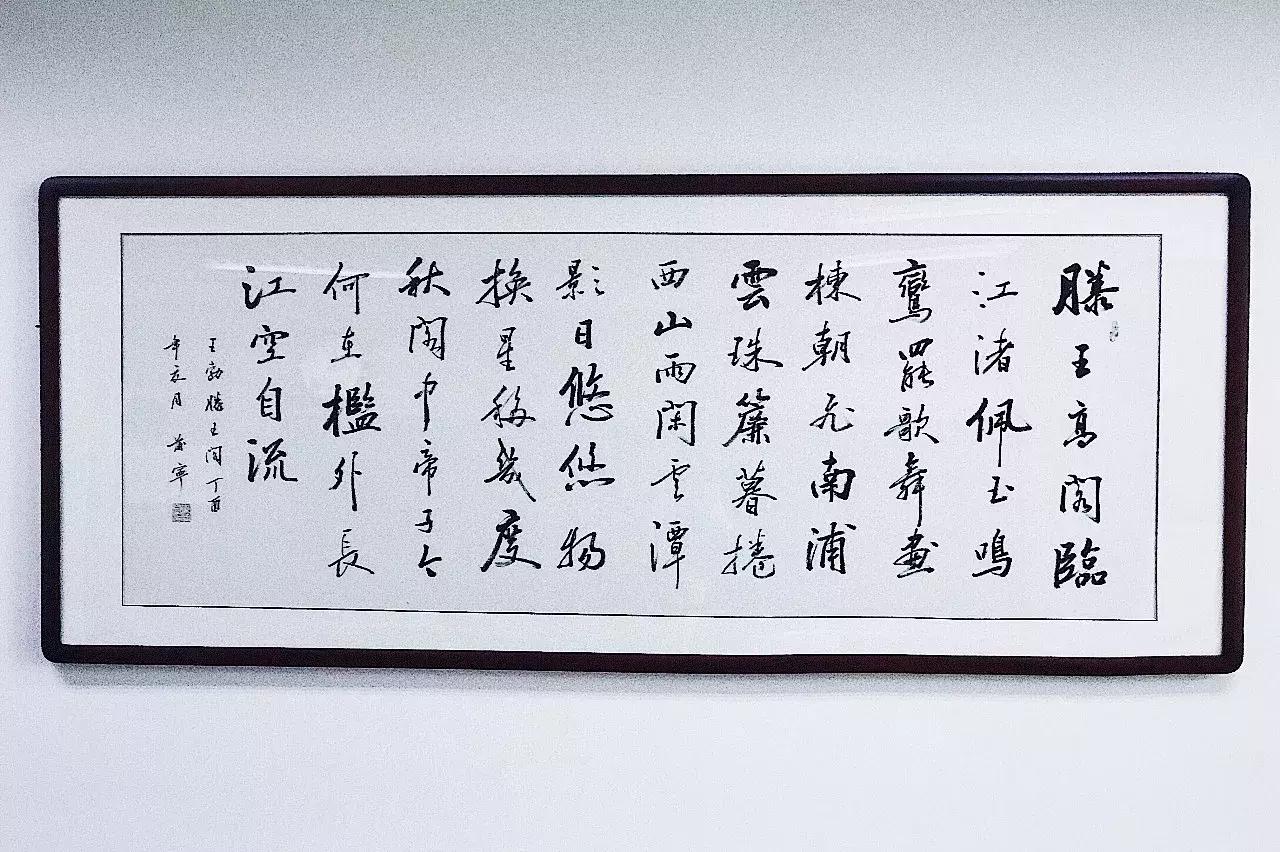 滕王高阁臨
江渚佩玉鳴
鸞罷歌舞畫
棟朝飛南浦
雲珠簾暮捲
西山雨閑雲潭
影日悠悠物
換星移幾度
秋閣中帝子今
何在檻外長
江空自流
王勃滕王閣丁酉
年夏月 寧